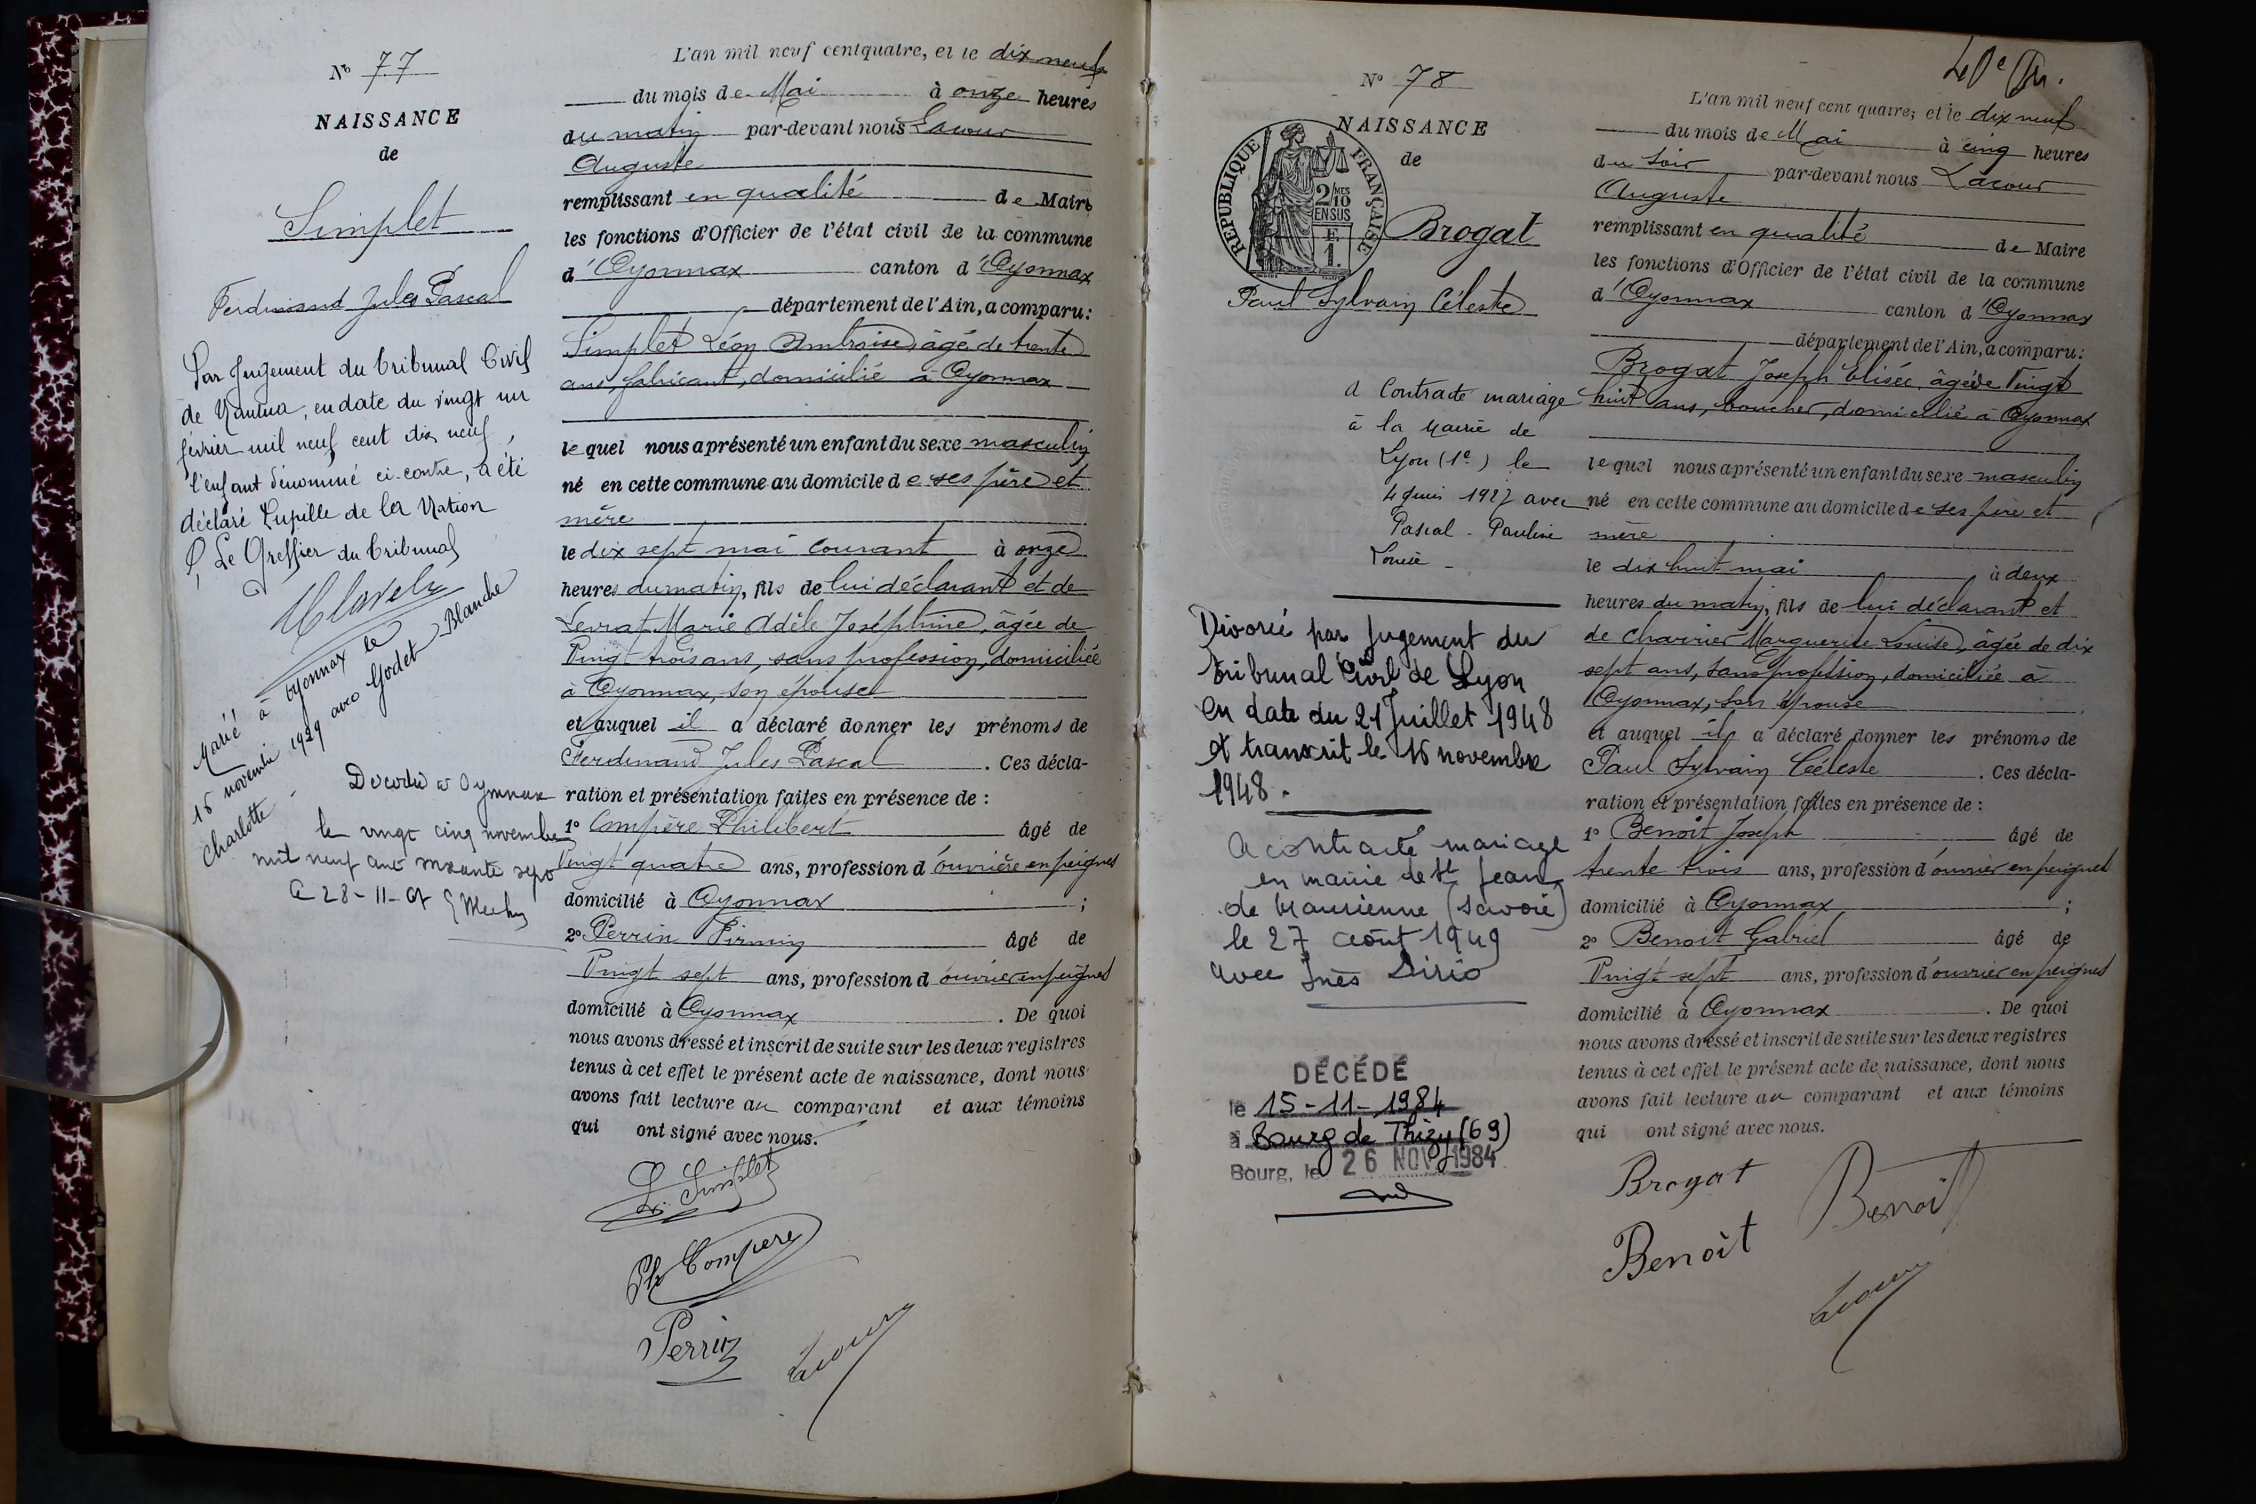 N° 77
NAISSANCE
de
Simplet
Ferdinand Jules Pascal
Par Jugement du Tribunal Civil
de Nantua, en date du vingt un
février mil neuf cent dix neuf,
l'enfant dénommé ci-contre, a été
déclaré Pupille de la Nation
P. Le Greffier du Tribunal
Marié à Oyonnax le
16 novembre 1929 avec Godet Blanche
Charlotte -
Décédé à Oyonnax
le vingt cinq novembre
mil neuf cent soixante sept
28-11-67
L'an mil neuf cent quatre, et le dix neuf
du mois de Mai à onze heures
du matin par-devant nous Lacour
Auguste
remplissant en qualité de Maire
les fonctions d'Officier de l'état civil de la commune
d'Oyonnax canton d'Oyonnax
département de l'Ain, a comparu:
Simplet Léon Ambroise, âgé de trente
ans, fabricant, domicilié à Oyonnax
lequel nous a présenté un enfant du sexe masculin
né en cette commune au domicile de ses père et
mère
le dix sept mai courant à onze
heures du matin, fils de lui déclarant et de
Levrat Marie Adèle Joséphine, âgée de
Vingt trois ans, sans profession, domiciliée
à Oyonnax, son épouse
et auquel il a déclaré donner les prénoms de
Ferdinand Jules Pascal. Ces décla-
ration et présentation faites en présence de :
1° Compère Philibert âgé de
Vingt quatre ans, profession d'ouvrière en peignes
domicilié à Oyonnax ;
2° Perrin Firmin âgé de
Vingt sept ans, profession d ouvrier en peignes
domicilié à Oyonnax. De quoi
nous avons dressé et inscrit de suite sur les deux registres
tenus à cet effet le présent acte de naissance, dont nous
avons fait lecture au comparant et aux témoins
qui ont signé avec nous.
L. Simplet
Ph Compere
Perrin
Lacour
N° 78
NAISSANCE
de
REPUBLIQUE FRANÇAISE
2/10 MES
EN SUS
F.
1.
Brogat
Paul Sylvain Céleste
A Contracté mariage
à la mairie de
Lyon (1e) le
4 Juin 1927 avec
Pascal - Pauline
Louise -
Divorcé par jugement du
tribunal Civil de Lyon
en date du 21 Juillet 1948
et transcrit le 16 novembre
1948.
A contracté mariage
en mairie de St Jean
de Maurienne (Savoie)
le 27 août 1949
avec Inès Sirio
DÉCÉDÉ
le 15-11-1984
à Bourg de Thizy (69)
Bourg, le 26 NOV 1984
L'an mil neuf cent quatre; et le dix neuf
du mois de Mai à cinq heures
du soir par-devant nous Lacour
Auguste
remplissant en qualité de Maire
les fonctions d'Officier de l'état civil de la commune
d'Oyonnax canton d'Oyonnax
département de l'Ain, a comparu:
Brogat Joseph Elisée âgé de Vingt
huit ans, boucher, domicilié à Oyonnax
lequel nous a présenté un enfant du sexe masculin
né en cette commune au domicile de ses père et
mère
le dix huit mai à deux
heures du matin, fils de lui déclarant et
de Charrier Marguerite Louise, âgée de dix
sept ans, sans profession, domiciliée à
Oyonnax, son épouse
et auquel il a déclaré donner les prénoms de
Paul Sylvain Céleste. Ces décla-
ration et présentation faites en présence de :
1° Benoit Joseph âgé de
trente trois ans, profession d'ouvrier en peignes
domicilié à Oyonnax ;
2° Benoit Gabriel âgé de
Vingt sept ans, profession d'ouvrier en peignes
domicilié à Oyonnax. De quoi
nous avons dressé et inscrit de suite sur les deux registres
tenus à cet effet le présent acte de naissance, dont nous
avons fait lecture au comparant et aux témoins
qui ont signé avec nous.
Brogat
Benoit
Benoît
Lacour